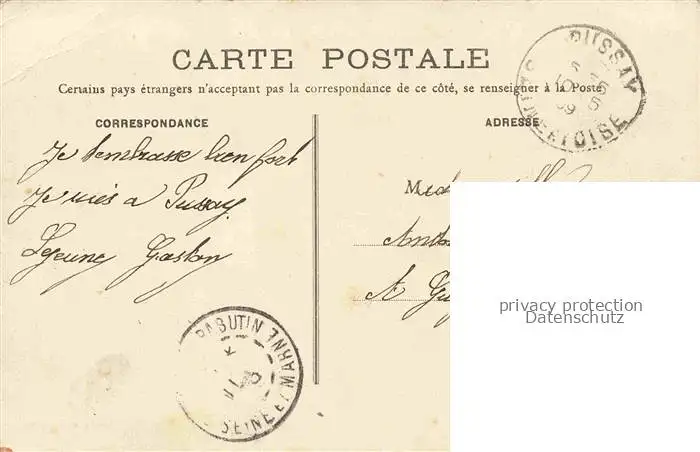 CARTE POSTALE
Certains pays étrangers n'acceptent pas la correspondance de ce côté, se renseigner à la Poste
CORRESPONDANCE
ADRESSE
Je t'embrasse bien fort
Je suis a Pussay
Lejeune Gaston
A
PUSSAY
OISE
RABUTIN
SEINE ET MARNE
privacy protection
Datenschutz